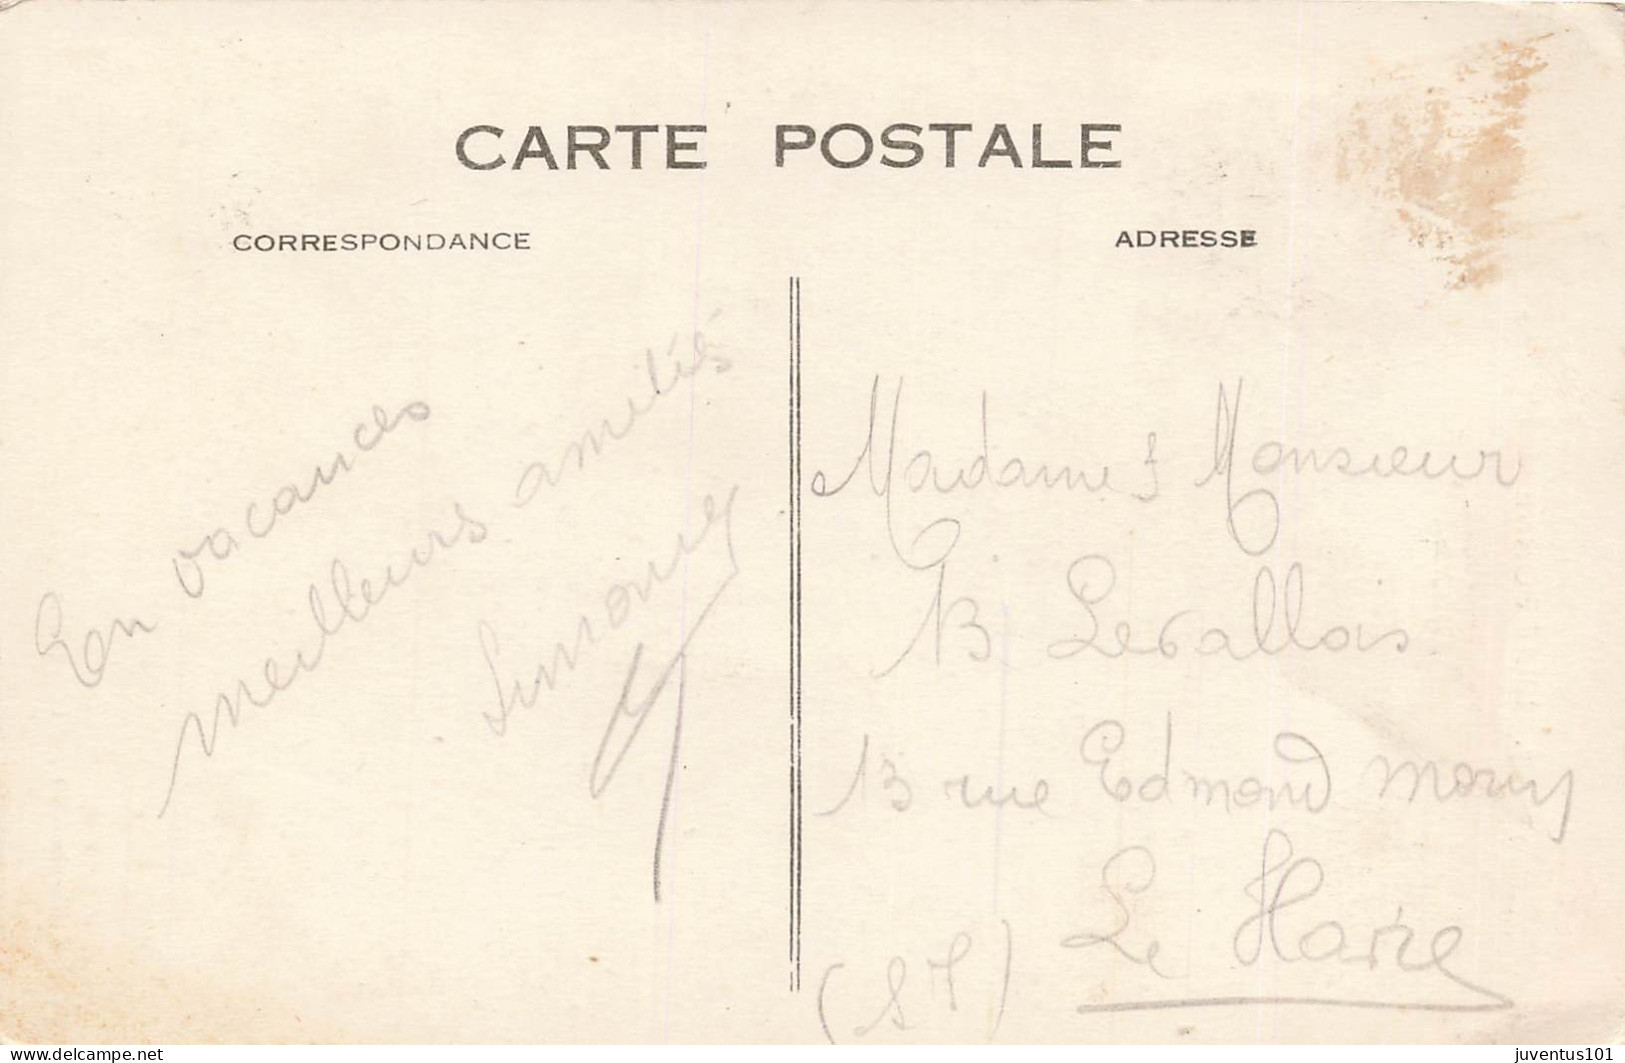 CARTE POSTALE
CORRESPONDANCE
ADRESSE
En vacances
meilleurs amitiés
Simone
Madame & Monsieur
B Levallois
13 rue Edmond Morin
Le Havre
(S I)
www.delcampe.net
juventus101